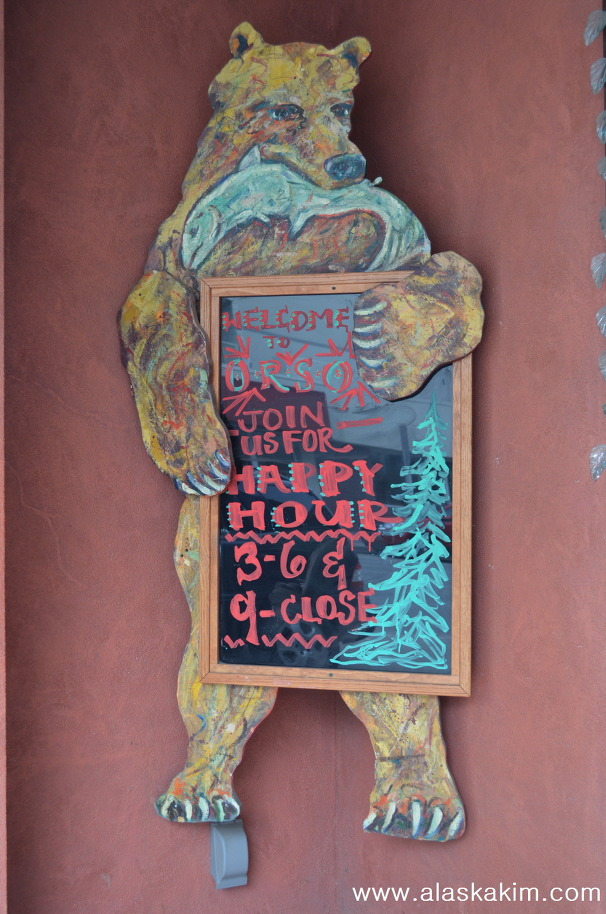 WELCOME
TO
ORSO
JOIN
US FOR
HAPPY
HOUR
3-6 &
9-CLOSE
www.alaskakim.com